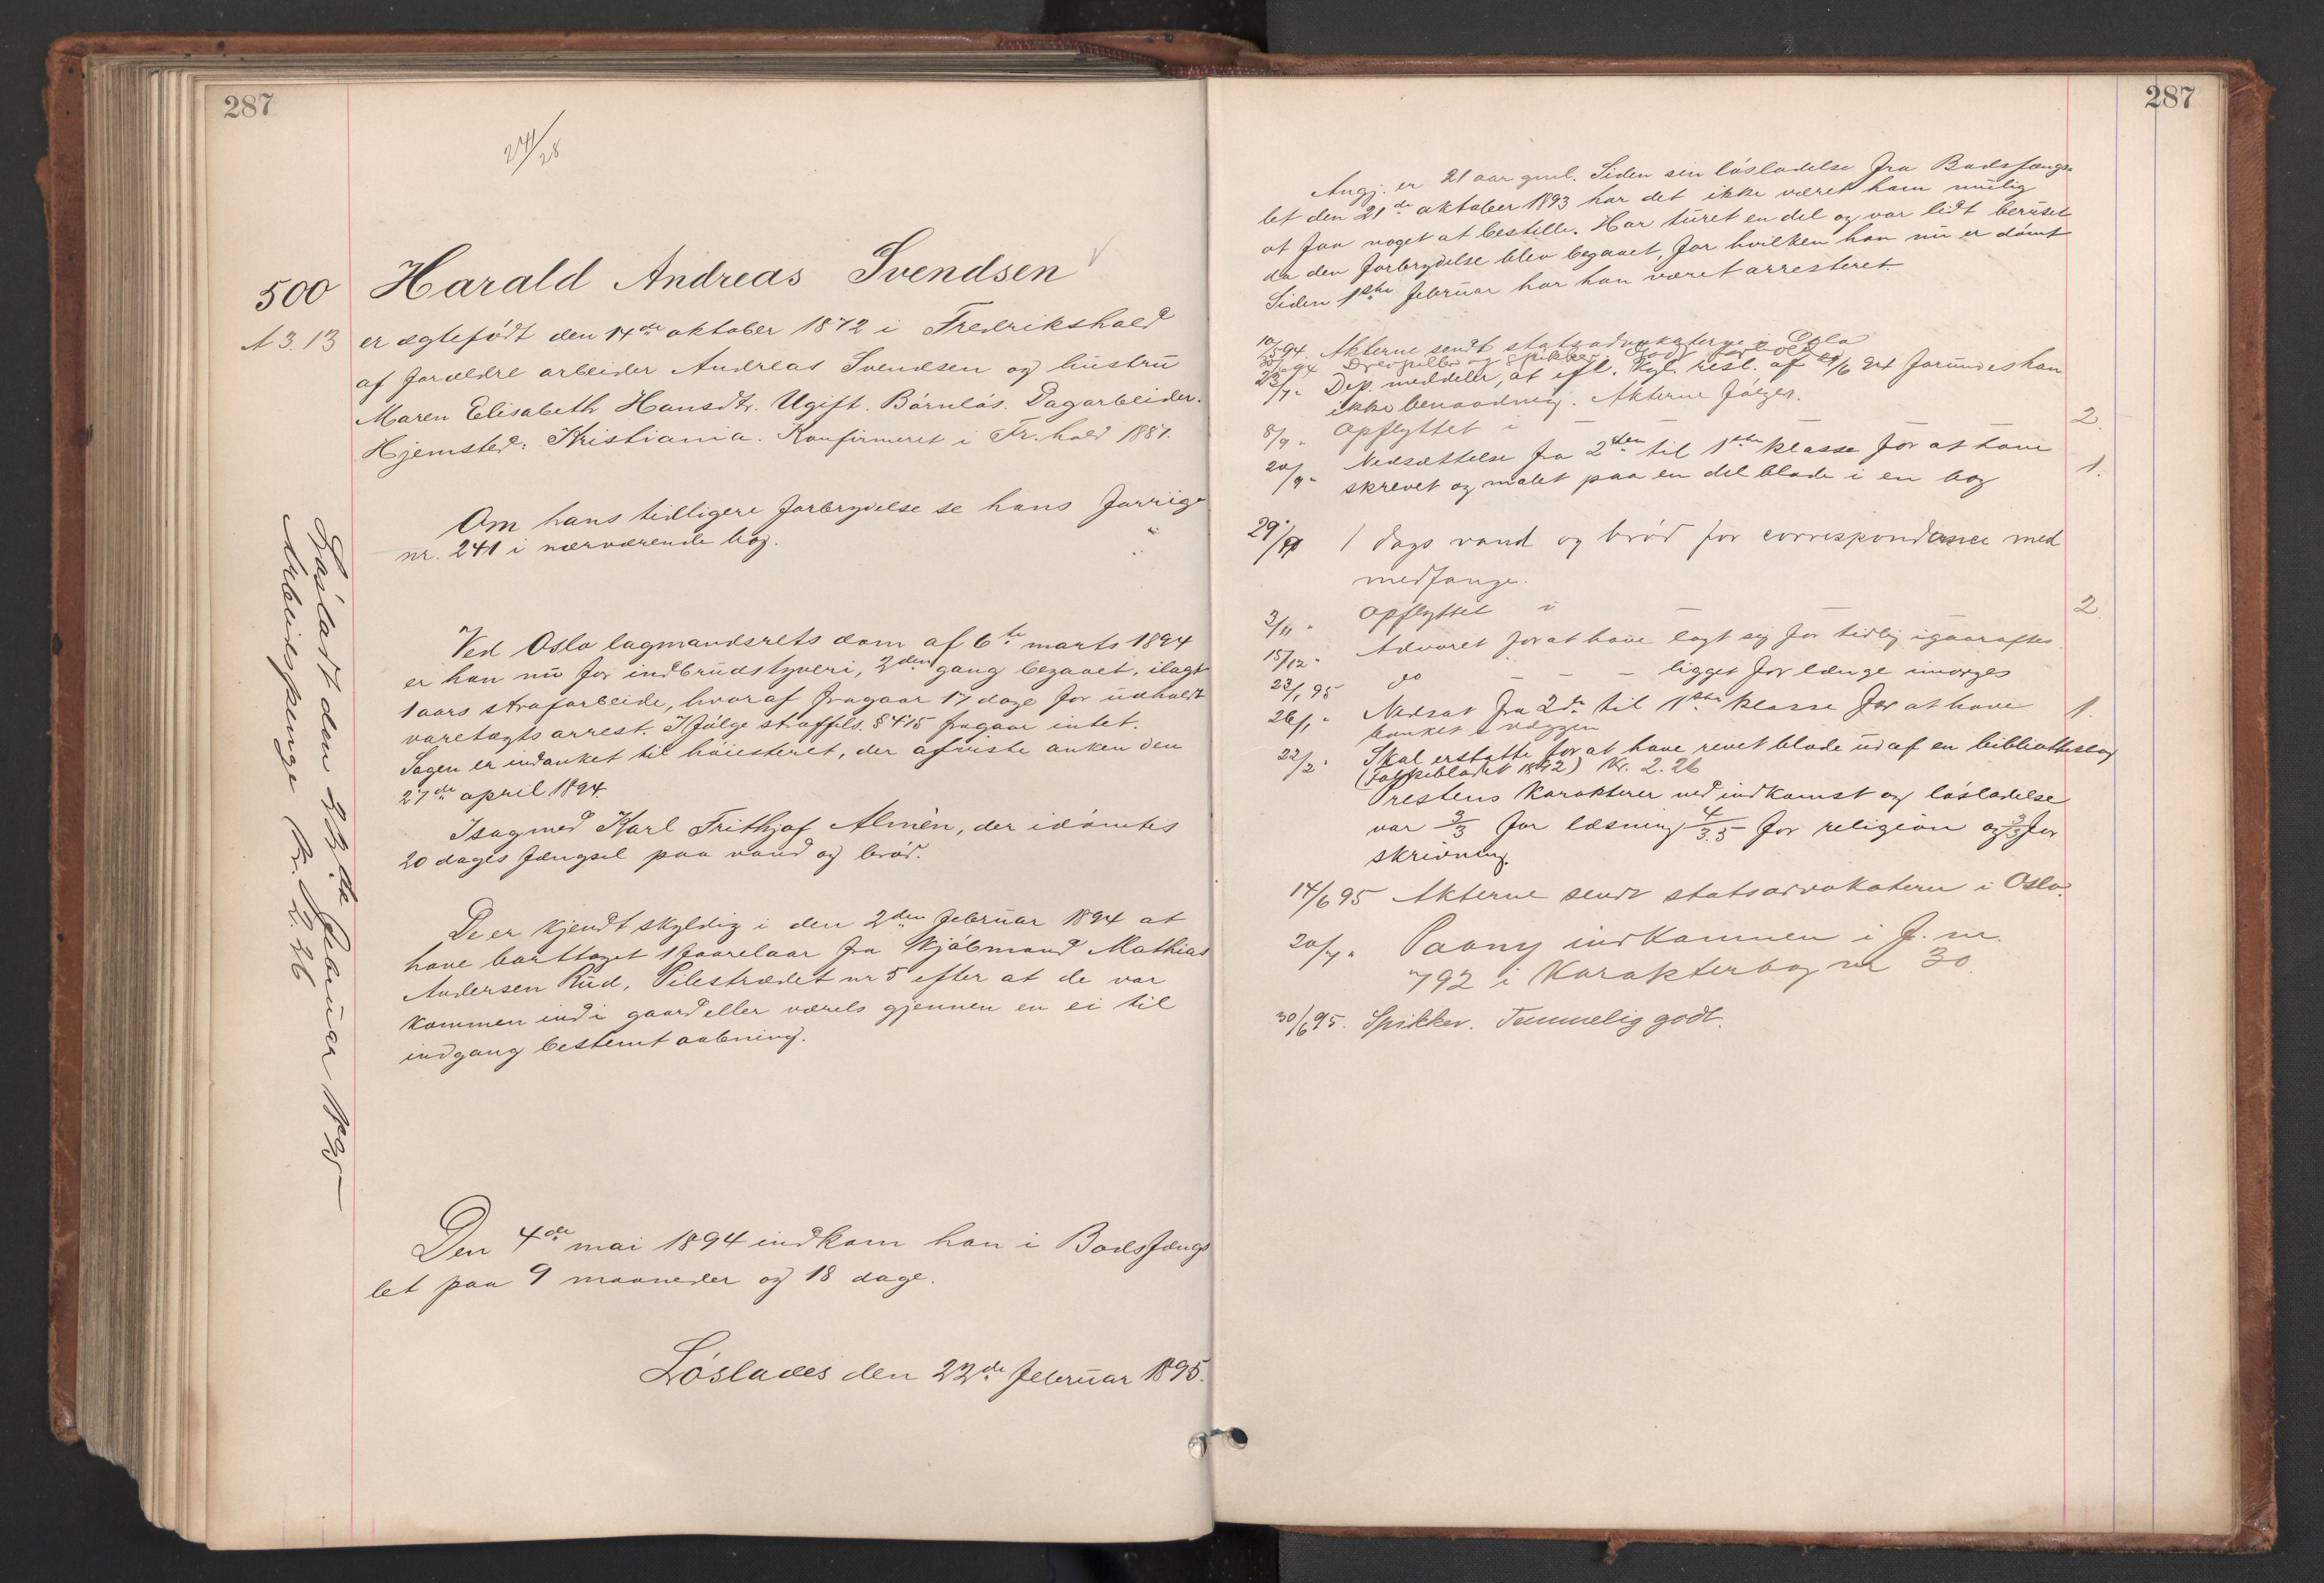 287
241/28
500 Harald Andreas Svendsen
A 3. 13 er ægtefødt den 14de oktober 1872 i Fredrikshald
af forældre arbeider Andreas Svendsen og hustru
Maren Elisabeth Hansdtr. Ugift. Børnløs. Dagarbeider.
Hjemsted: Kristiania. Konfirmeret i Fr.hald 1887.
Om hans tidligere forbrydelse se hans forrige
nr. 241 i nærværende bog.
Ved Oslo lagmandsrets dom af 6te marts 1894
er han nu for indbrudstyveri, 2den gang begaaet, ilagt
1 aars strafarbeide, hvoraf fragaar 17 dage for udholdt
varetægtsarrest. Ifølge straffels. § 415 fragaar intet.
Sagen er indanket til høiesteret, der afviste anken den
27de april 1894.
Isagmed Karl Frithjof Almèn, der idømtes
20 dages fængsel paa vand og brød.
De er kjendt skyldig i den 2den februar 1894 at
have borttaget 1 faarelaar fra Kjøbmand Mathias
Andersen Rud, Pilestrædet nr 5 efter at de var
kommen ind i gaard eller værels gjennen en ei til
indgang bestemt aabning.
Den 4de mai 1894 indkom han i Bodsfæng
let paa 9 maaneder og 18 dage.
Løslades den 22de februar 1895.
Løsladt den 22de februar 1895
Arbeidspenge Kr. 2.26
287
Angj. er 21 aar gml. Siden sin løsladelse fra Bodsfængs-
let den 21de oktober 1893 har det ikke været ham mulig
at faa noget at bestille. Har turet en del og var lidt beruset
da den forbrydelse blev begaaet, for hvilken han nu er dømt
Siden 1ste februar har han været arresteret.
10/5 94. Akterne sendt statsadvokaterne i Oslo
30/6 94 og spikker. Godt
23/7 " Dep. meddeler, at efl. Kgl. resl. af /6 94 forundes han
ikke benaadning. Akterne følger.
8/9 " Opflyttet i — — — 2.
20/9 " Nedsættelse fra 2den til 1ste klasse for at have
skrevet og malet paa en del blade i en bog 1.
29/9 1 dags vand og brød for correspondance med
medfange.
2/11 " Opflyttet i — — 2
15/12 " Advaret for at have lagt sig for tidlig igaaraftes
23/1 95 do — — — ligget for længe imorges
26/1 " Nedsat fra 2de til 1ste klasse for at have 1.
banket i væggen
22/2 " Skal erstatte for at have revet blade ud af en bibliotheksbog
(Folkebladet 1892) Kr. 2.26
Prestens karakterer ved indkomst og løsladelse
var 3/3 for læsning 4/3.5 for religion og 3/3 for
skrivning.
14/6 95 Akterne sendt statsadvokaterne i Oslo.
20/7 " Paany indkommen i f. nr.
792 i Karakterbog nr 30.
30/6 95. Spikker. Temmelig godt.